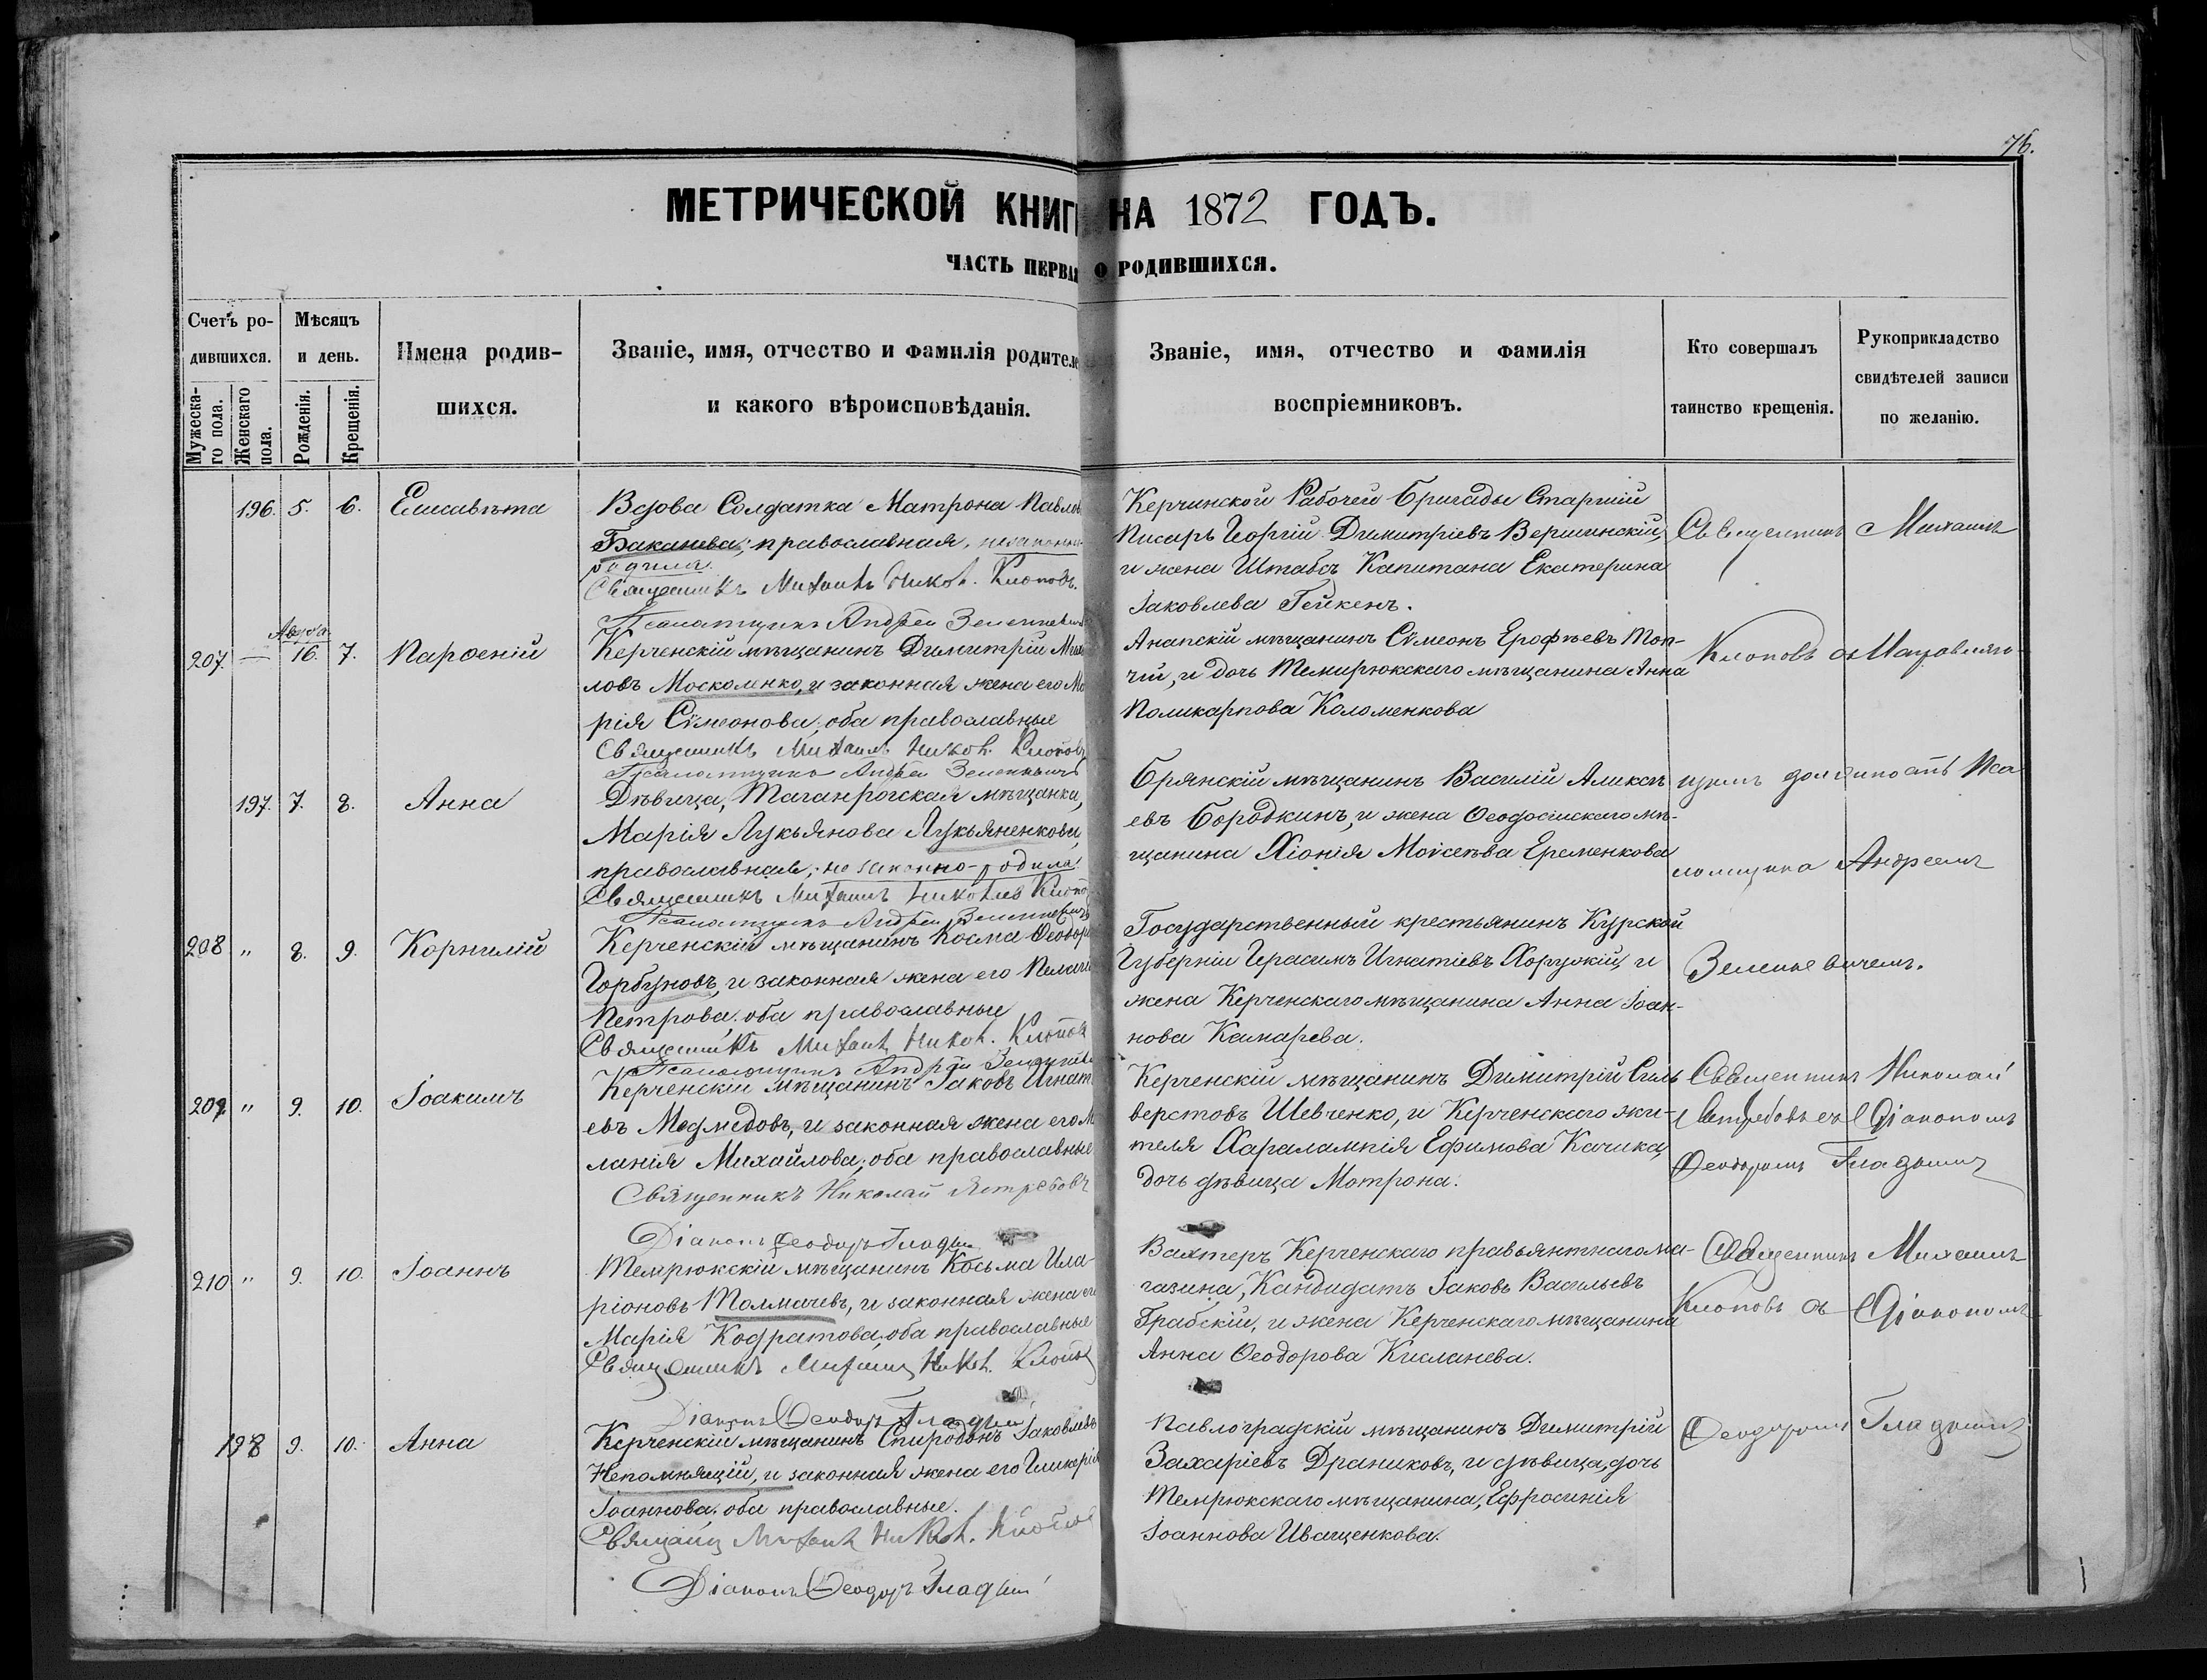 76.
МЕТРИЧЕСКОЙ КНИГ НА 1872 ГОДЪ.
ЧАСТЬ ПЕРВАЯ О РОДИВШИХСЯ.
Счетъ ро-
дившихся.
Мужеска-
го пола.
Женскаго
пола.
Мѣсяцъ
и день.
Рожденія.
Крещенія.
Имена родив-
шихся.
Званіе, имя, отчество и фамилія родителе
и какого вѣроисповѣданія.
Званіе, имя, отчество и фамилія
воспріемниковъ.
Кто совершалъ
таинство крещенія.
Рукоприкладство
свидѣтелей записи
по желанію.
196. 5. 6. Елисавѣта
Вдова Солдатка Матрона Павлов
Баканева; православная, незаконно
родила.
Священникъ Михаилъ Никол. Клоповъ.
Псаломщикъ Андрей Зеленкевичъ
Керчинской Рабочей Бригады Старшій
Писарь Георгій Димитріевъ Вершинскій,
и жена Штабсъ Капитана Екатерина
Іаковлева Гейкенъ.
Священникъ Михаилъ
207. — Августа 16. 7. Парѳеній
Керченскій мѣщанинъ Димитрій Миха
ловъ Москаленко, и законная жена его Ма
рія Сѵмеонова; оба православные
Священникъ Михаилъ Никол. Клоповъ
Псаломщикъ Андрей Зеленкевичъ
Анапскій мѣщанинъ Сѵмеонъ Ерофѣевъ Топ-
чій, и дочь Темирюкскаго мѣщанина Анна
Поликарпова Коломенкова
Клоповъ съ Исправляю-
197. 7. 8. Анна
Дѣвица, Таганрогская мѣщанка,
Марія Лукьянова Лукьяненкова,
православная; не законно-родила
Священникъ Михаилъ Николаев Клопо
Псаломщикъ Андрей Зеленкевичъ
Брянскій мѣщанинъ Василій Алексѣ
евъ Бородкинъ, и жена Ѳеодосійскаго мѣ-
щанина Хіонія Моѵсеева Еременкова
щимъ должность Пса
ломщика Андреемъ
208 " 8. 9. Корнилій
Керченскій мѣщанинъ Косма Ѳеодор
Горбуновъ, и законная жена его Пелагі
Петрова. оба православные
Священникъ Михаилъ Никол. Клопов
Псаломщикъ Андрей Зеленкевичъ
Государственный крестьянинъ Курской
Губерніи Герасимъ Игнатіевъ Хоружій, и
жена Керченскаго мѣщанина Анна Іоан-
нова Камарева.
Зеленкевичемъ.
209. " 9. 10. Іоакимъ
Керченскій мѣщанинъ Іаковъ Игнат
евъ Медмедовъ, и законная жена его М
ланія Михайлова; оба православные
Священникъ Николай Ястребовъ
Діаконъ Ѳеодоръ Гладкій
Керченскій мѣщанинъ Димитрій Силь
верстовъ Шевченко, и Керченскаго жи-
теля Харалампія Ефимова Качика,
дочь дѣвица Мотрона.
Священникъ Николай
Ястребовъ съ Діакономъ
Ѳеодоромъ Гладкимъ
210 " 9. 10. Іоаннъ
Темрюкскій мѣщанинъ Косьма Ила-
ріоновъ Толмачевъ, и законная жена ег
Марія Кодратова, оба православные
Священникъ Михаилъ Никол. Клоповъ
Діаконъ Ѳеодоръ Гладкій
Вахтеръ Керченскаго правьянтнаго ма-
газина, Кандидатъ Іаковъ Васильевъ
Грабскій, и жена Керченскаго мѣщанина
Анна Ѳеодорова Кисланева.
Священникъ Михаилъ
Клоповъ съ Діакономъ
198 9. 10. Анна
Керченскій мѣщанинъ Спиродонъ Іаковлевъ
Непомнящій, и законная жена его Гликерія
Іоаннова. оба православные.
Священникъ Михаилъ Никол. Клопов
Діаконъ Ѳеодоръ Гладкій
Павлоградскій мѣщанинъ Димитрій
Захаріевъ Драниковъ, и дѣвица, дочь
Темрюкскаго мѣщанина, Ефросинія
Іоаннова Иващенкова.
Ѳеодоромъ Гладкимъ